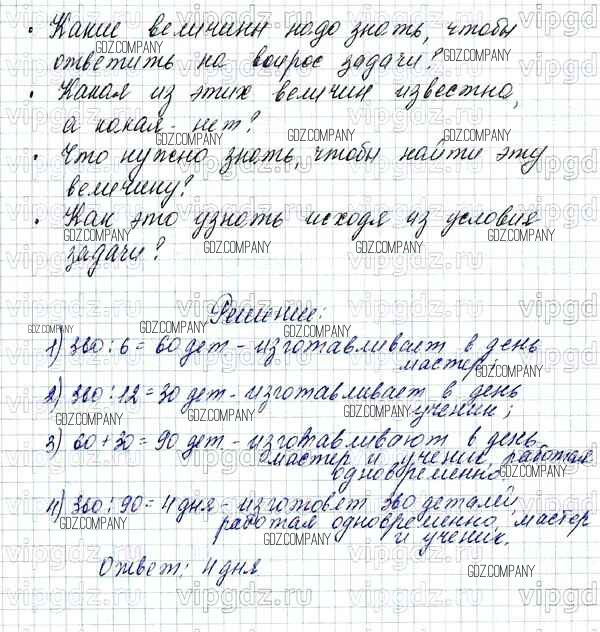 • Какие величины надо знать, чтобы
ответить на вопрос задачи?
• Какая из этих величин известна,
а какая - нет?
• Что нужно знать, чтобы найти эту
величину?
• Как это узнать исходя из условия
задачи?
Решение:
1) 360 : 6 = 60 дет - изготавливает в день
мастер;
2) 360 : 12 = 30 дет - изготавливает в день
ученик;
3) 60 + 30 = 90 дет - изготавливают в день
мастер и ученик, работая
одновременно.
4) 360 : 90 = 4 дня - изготовят 360 деталей,
работая одновременно, мастер
и ученик.
Ответ: 4 дня